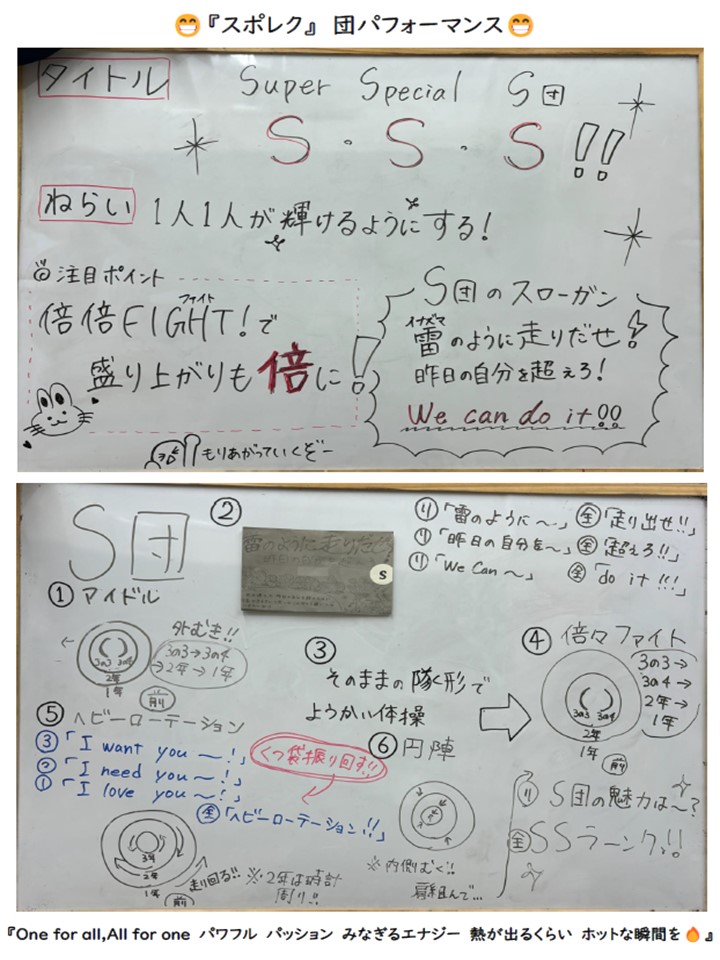 😁『スポレク』 団パフォーマンス😁
タイトル
Super Special S団
S・S・S!!
ねらい 1人1人が輝けるようにする!
注目ポイント
倍倍FIGHT!で
ファイト
盛り上がりも倍に!
もりあがっていくぞー
S団のスローガン
イナズマ
雷のように走りだせ!
昨日の自分を超えろ!
We can do it!!
S団
① アイドル
外むき!!
3の3→3の4
→2年→1年
3の3 3の4
2年
1年
前
②
雷のように走りだせ
S
リ「雷のように〜」 全「走り出せ!!」
リ「昨日の自分を〜」 全「超えろ!!」
リ「We Can 〜」 全「do it!!!」
③
そのままの隊形で
ようかい体操
④ 倍々ファイト
3の3→
3の4→
2年→
1年
3の3 3の4
2年
1年
前
⑤ ヘビーローテーション
③「I want you 〜!」
②「I need you 〜!」
①「I love you 〜!」
くつ袋振り回す!!
全「ヘビーローテーション!!」
3年
2年
1年
前
走り回る!!
※2年は時計
周り!!
⑥ 円陣
※内側むく!!
肩組んで…
リ S団の魅力は〜?
全 SSラーンク!!
『One for all,All for one パワフル パッション みなぎるエナジー 熱が出るくらい ホットな瞬間を🔥』